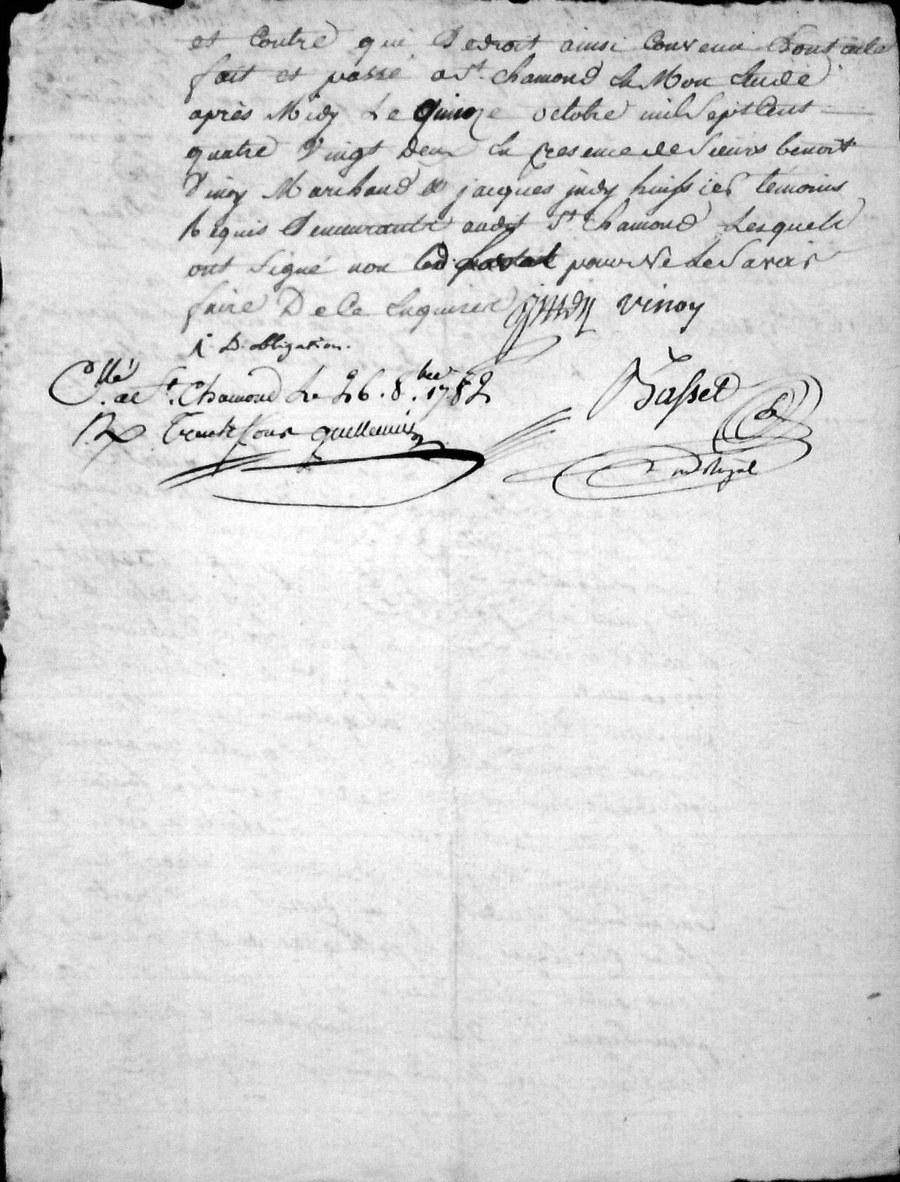 et Contre qui De droit ainsi Convenu Dont acte
fait et passé a St. Chamond En Mon Etude
après Midy Le quinze octobre mil Sept Cent
quatre Vingt Deux En presence de Sieurs benoit
Vinoy Marchand & jacques judy huissier témoins
Requis Demeurants audit St Chamond Lesquels
ont Signé non led. pour Ne Le Savoir
faire De Ce Enquis
Vinoy
D'obligation.
C.llé a St. Chamond Le 26. 8.bre 1782
Rx Trente sous guillemin
Basset
nre Royal